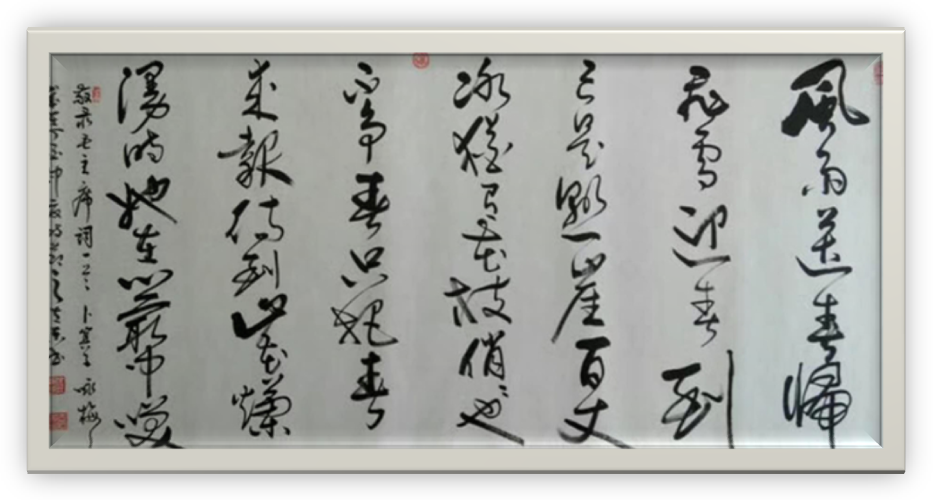 風雨送春歸
飛雪迎春到
已是懸崖百丈
冰猶有花枝俏々也
不爭春只把春
來報待到山花爛
漫時她在叢中笑
敬录毛主席词一首卜算子咏梅